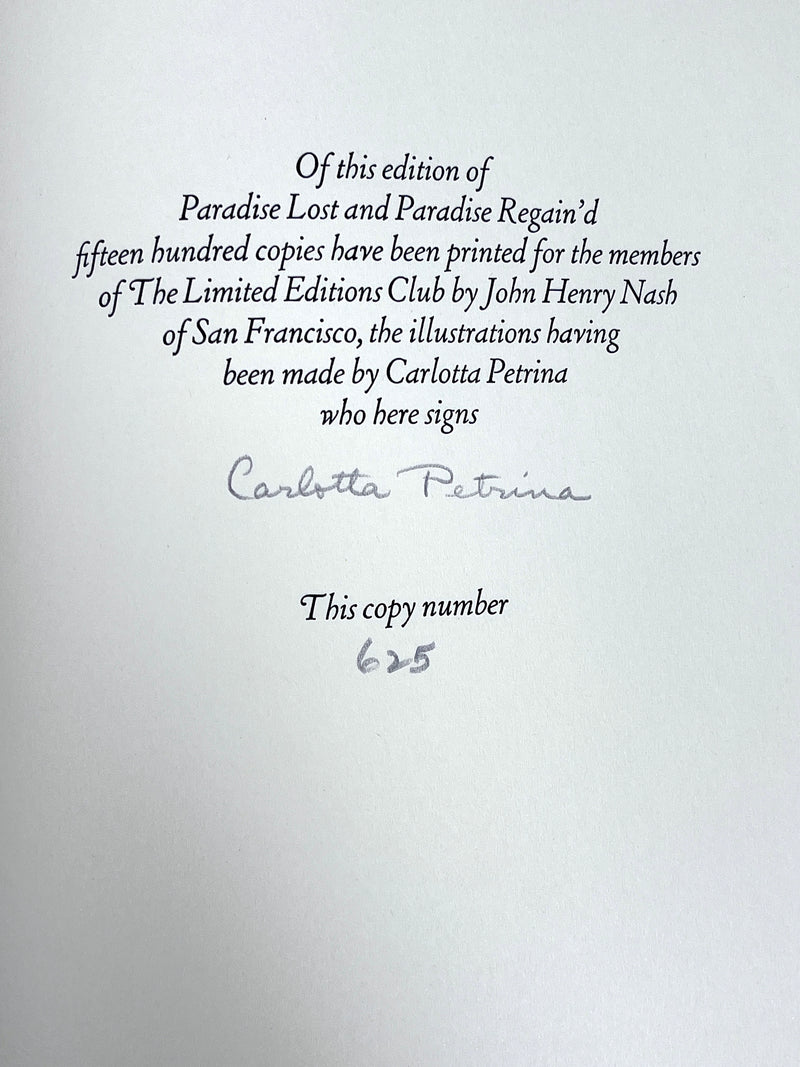 Of this edition of
Paradise Lost and Paradise Regain’d
fifteen hundred copies have been printed for the members
of The Limited Editions Club by John Henry Nash
of San Francisco, the illustrations having
been made by Carlotta Petrina
who here signs
Carlotta Petrina
This copy number
625